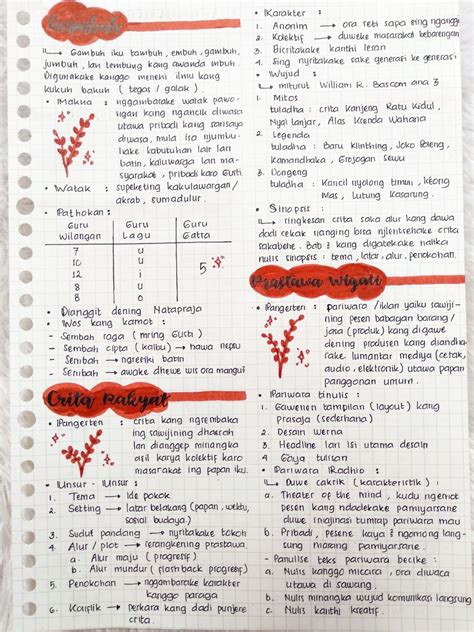 Gambuh
Gambuh iku tambuh, embuh, gambuh,
jumbuh, lan tembung kang awanda mbuh.
Digunakake kanggo menehi ilmu kang
kukuh bakuh ( tegas / galak ).
• Makna : nggambarake watak pawo-
ngan kang ngancik diwasa
utawa pribadi kang sansaya
diwasa, mula isa njumbu-
hake kabutuhan lair lan
batin, kaluwarga lan ma-
syarakat, pribadi karo Gusti.
• Watak : supeketing kakulawargan /
akrab, sumadulur.
• Pathokan :
Guru Wilangan Guru Lagu Guru Gatra
7 u
10 u
12 i 5
8 u
8 o
• Dianggit dening Natapraja
• Wos kang kamot :
- Sembah raga ( mring Gusti )
- Sembah cipta ( kalbu ) → hawa nepsu
- Sembah → ngreriki batin
- Sembah → awake dhewe wis ora mangui
Crita Rakyat
• Pangerten : crita kang ngrembaka
ing sawijining dhaerah
lan dianggep minangka
asil karya kolektif karo
masarakat ing papan iku.
• Unsur - Unsur :
1. Tema → Ide pokok
2. Setting → latar belakang (papan, wektu,
sosial budaya)
3. Sudut pandang → nyritakake tokoh
4. Alur / plot → rerangkening prastawa
a. Alur maju ( progresif )
b. Alur mundur ( flashback progresif )
5. Penokohan → nggambarake karakter
kanggo paraga
6. Konflik → Perkara kang dadi punjere
crita.
• Karakter :
1. Anonim → ora reti sapa eing ngangg
2. Kolektif → duweke masarakat bebarengan
3. Dicritakake kanthi lesan
4. Sing nyritakake saka generasi ke generasi
• Wujud :
miturut William R. Bascom ana 3
1. Mitos
tuladha : crita Kanjeng Ratu Kidul,
Nyai Lanjar, Alas Krenda Wahana
2. Legenda
tuladha : Baru Klinthing, Joko Peleng,
Kamandhaka, Grojogan Sewu
3. Dongeng
tuladha : Kancil nyolong timun, Keong
Mas, Lutung Kasarung.
• Sinopsis :
ringkesan crita saka alur kang dawa
dadi cekak nanging bisa njlentrehake crita
sakabehe. Bab 2 kang digatekake nalika
nulis sinopsis : tema, latar, alur, penokohan.
• Pangerten : pariwara / iklan yaiku sawiji-
ning pesen babagan barang /
jasa (produk) kang digawe
dening produsen kang diandha
rake lumantar mediya (cetak,
audio, elektronik) utawa papan
panggonan umum.
• Pariwara tinulis :
1. Gawenen tampilan (layout) kang
prasaja (sederhana)
2. Desain werna
3. Headline lan isi utama desain
4. Gaya tulisan
• Pariwara Radhio :
- Duwe cakrik ( karakteristik ) :
a. Theater of the mind, kudu ngemot
pesen kang ndadekake pamiyarsane
duwe imajinasi tumrap pariwara mau
b. Pribadi, pesene kaya 2 ngomong lang-
sung marang pamiyarsane.
- Panulise teks pariwara becike :
a. Nulis kanggo micara, ora diwaca
utawa di sawang.
b. Nulis minangka wujud komunikasi langsung
c. Nulis kanthi kreatif.